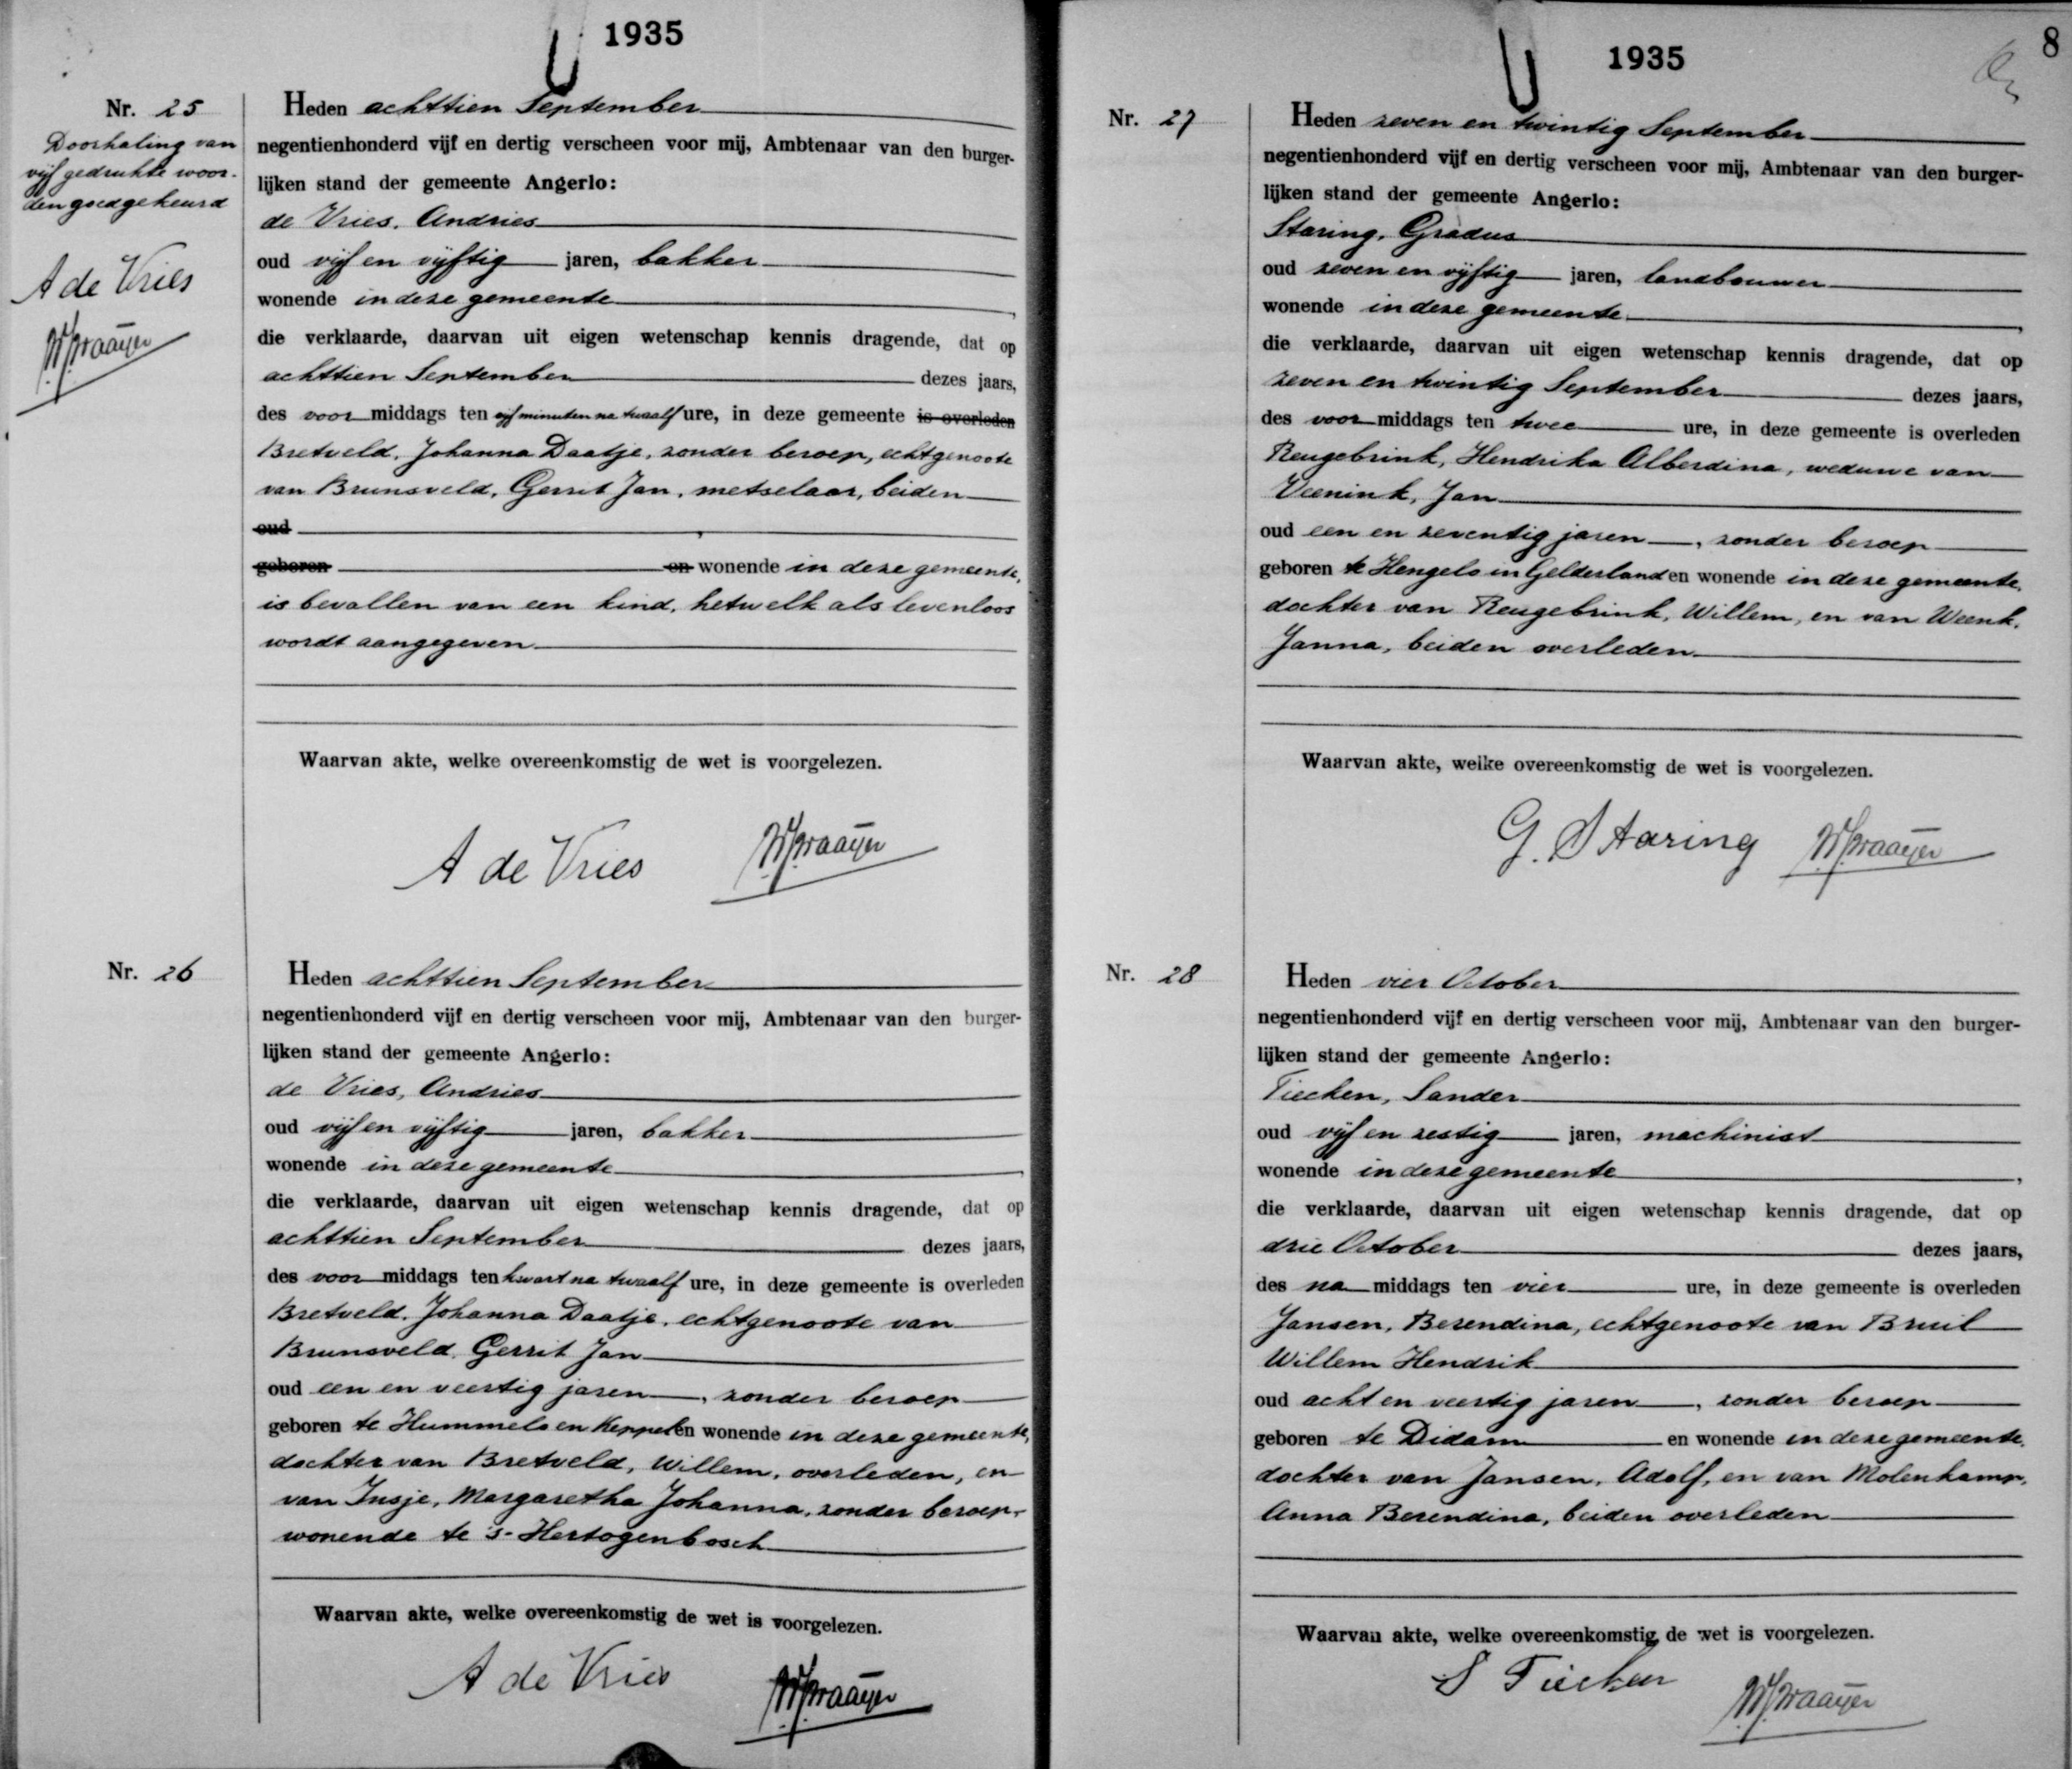 1935
Nr. 25
Doorhaling van
vijf gedrukte woor-
den goedgekeurd
A de Vries
Heden achttien September
negentienhonderd vijf en dertig verscheen voor mij, Ambtenaar van den burger-
lijken stand der gemeente Angerlo:
de Vries, Andries
oud vijf en vijftig jaren, bakker
wonende in deze gemeente,
die verklaarde, daarvan uit eigen wetenschap kennis dragende, dat op
achttien September dezes jaars,
des voor middags ten vijf minuten na twaalf ure, in deze gemeente is overleden
Bretveld, Johanna Daatje, zonder beroep, echtgenoote
van Brunsveld, Gerrit Jan, metselaar, beiden
oud ,
geboren en wonende in deze gemeente,
is bevallen van een kind, hetwelk als levenloos
wordt aangegeven
Waarvan akte, welke overeenkomstig de wet is voorgelezen.
A de Vries
Nr. 26
Heden achttien September
negentienhonderd vijf en dertig verscheen voor mij, Ambtenaar van den burger-
lijken stand der gemeente Angerlo:
de Vries, Andries
oud vijf en vijftig jaren, bakker
wonende in deze gemeente,
die verklaarde, daarvan uit eigen wetenschap kennis dragende, dat op
achttien September dezes jaars,
des voor middags ten kwart na twaalf ure, in deze gemeente is overleden
Bretveld, Johanna Daatje, echtgenoote van
Brunsveld, Gerrit Jan
oud een en veertig jaren, zonder beroep
geboren te Hummelo en Keppel en wonende in deze gemeente,
dochter van Bretveld, Willem, overleden, en
van Insje, Margaretha Johanna, zonder beroep,
wonende te 's-Hertogenbosch
Waarvan akte, welke overeenkomstig de wet is voorgelezen.
A de Vries
1935
8
Nr. 27
Heden zeven en twintig September
negentienhonderd vijf en dertig verscheen voor mij, Ambtenaar van den burger-
lijken stand der gemeente Angerlo:
Staring, Gradus
oud zeven en vijftig jaren, landbouwer
wonende in deze gemeente,
die verklaarde, daarvan uit eigen wetenschap kennis dragende, dat op
zeven en twintig September dezes jaars,
des voor middags ten twee ure, in deze gemeente is overleden
Reugebrink, Hendrika Alberdina, weduwe van
Veenink, Jan
oud een en zeventig jaren, zonder beroep
geboren te Hengelo in Gelderland en wonende in deze gemeente,
dochter van Reugebrink, Willem, en van Weenk,
Janna, beiden overleden
Waarvan akte, welke overeenkomstig de wet is voorgelezen.
G. Staring
Nr. 28
Heden vier October
negentienhonderd vijf en dertig verscheen voor mij, Ambtenaar van den burger-
lijken stand der gemeente Angerlo:
Tiecken, Sander
oud vijf en zestig jaren, machinist
wonende in deze gemeente,
die verklaarde, daarvan uit eigen wetenschap kennis dragende, dat op
drie October dezes jaars,
des na middags ten vier ure, in deze gemeente is overleden
Jansen, Berendina, echtgenoote van Bruil
Willem Hendrik
oud acht en veertig jaren, zonder beroep
geboren te Didam en wonende in deze gemeente,
dochter van Jansen, Adolf, en van Molenkamp,
Anna Berendina, beiden overleden
Waarvan akte, welke overeenkomstig de wet is voorgelezen.
S Tiecken